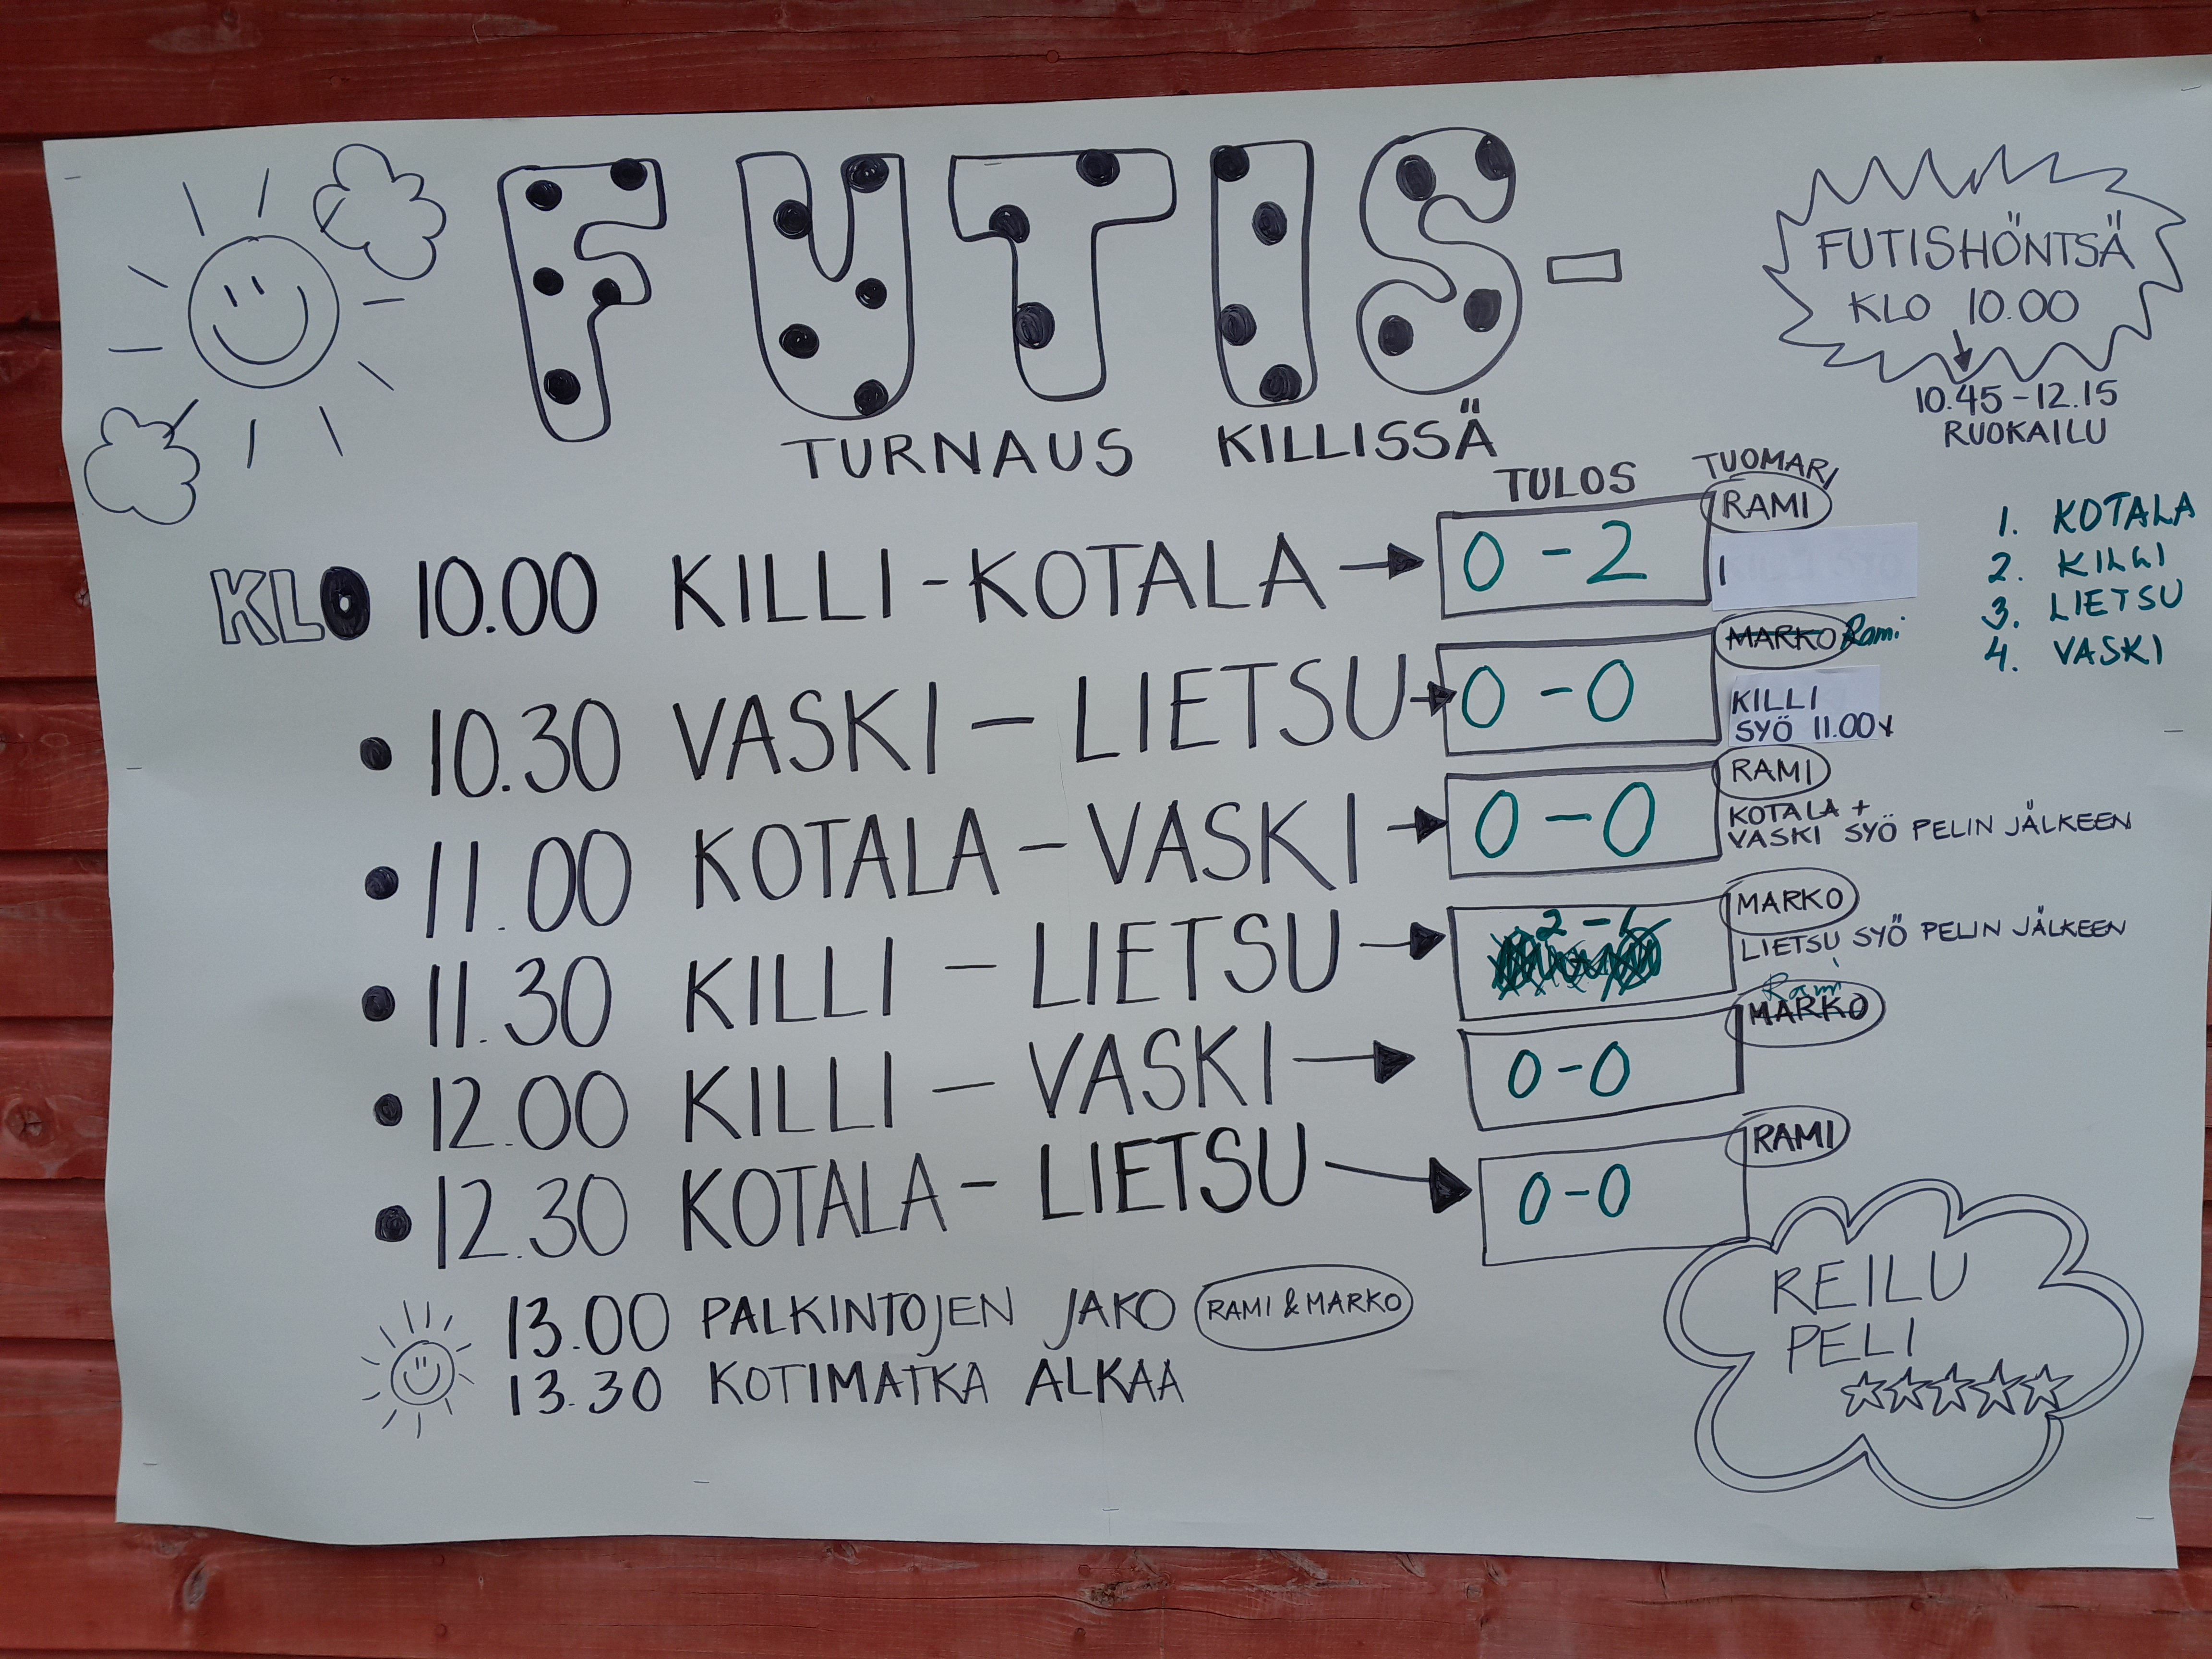 FUTIS-
TURNAUS KILLISSÄ
FUTISHÖNTSÄ
KLO 10.00
10.45-12.15
RUOKAILU
TULOS TUOMARI
KLO 10.00 KILLI-KOTALA → 0-2 RAMI
• 10.30 VASKI - LIETSU → 0-0 MARKO Rami
KILLI
SYÖ 11.00
• 11.00 KOTALA - VASKI → 0-0 RAMI
KOTALA +
VASKI SYÖ PELIN JÄLKEEN
• 11.30 KILLI - LIETSU → 2- MARKO
LIETSU SYÖ PELIN JÄLKEEN
• 12.00 KILLI - VASKI → 0-0 MARKO Rami
• 12.30 KOTALA - LIETSU → 0-0 RAMI
13.00 PALKINTOJEN JAKO RAMI & MARKO
13.30 KOTIMATKA ALKAA
1. KOTALA
2. KILLI
3. LIETSU
4. VASKI
REILU
PELI